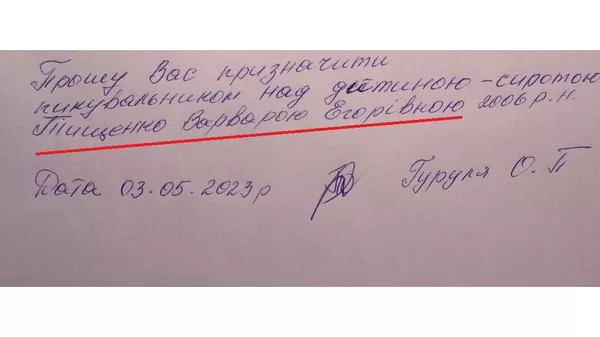 Прошу Вас призначити
пікувальником над дитиною-сиротою
Тищенко Варварою Егорівною 2006 р.н.
Дата 03.05.2023р Гуруля О.П